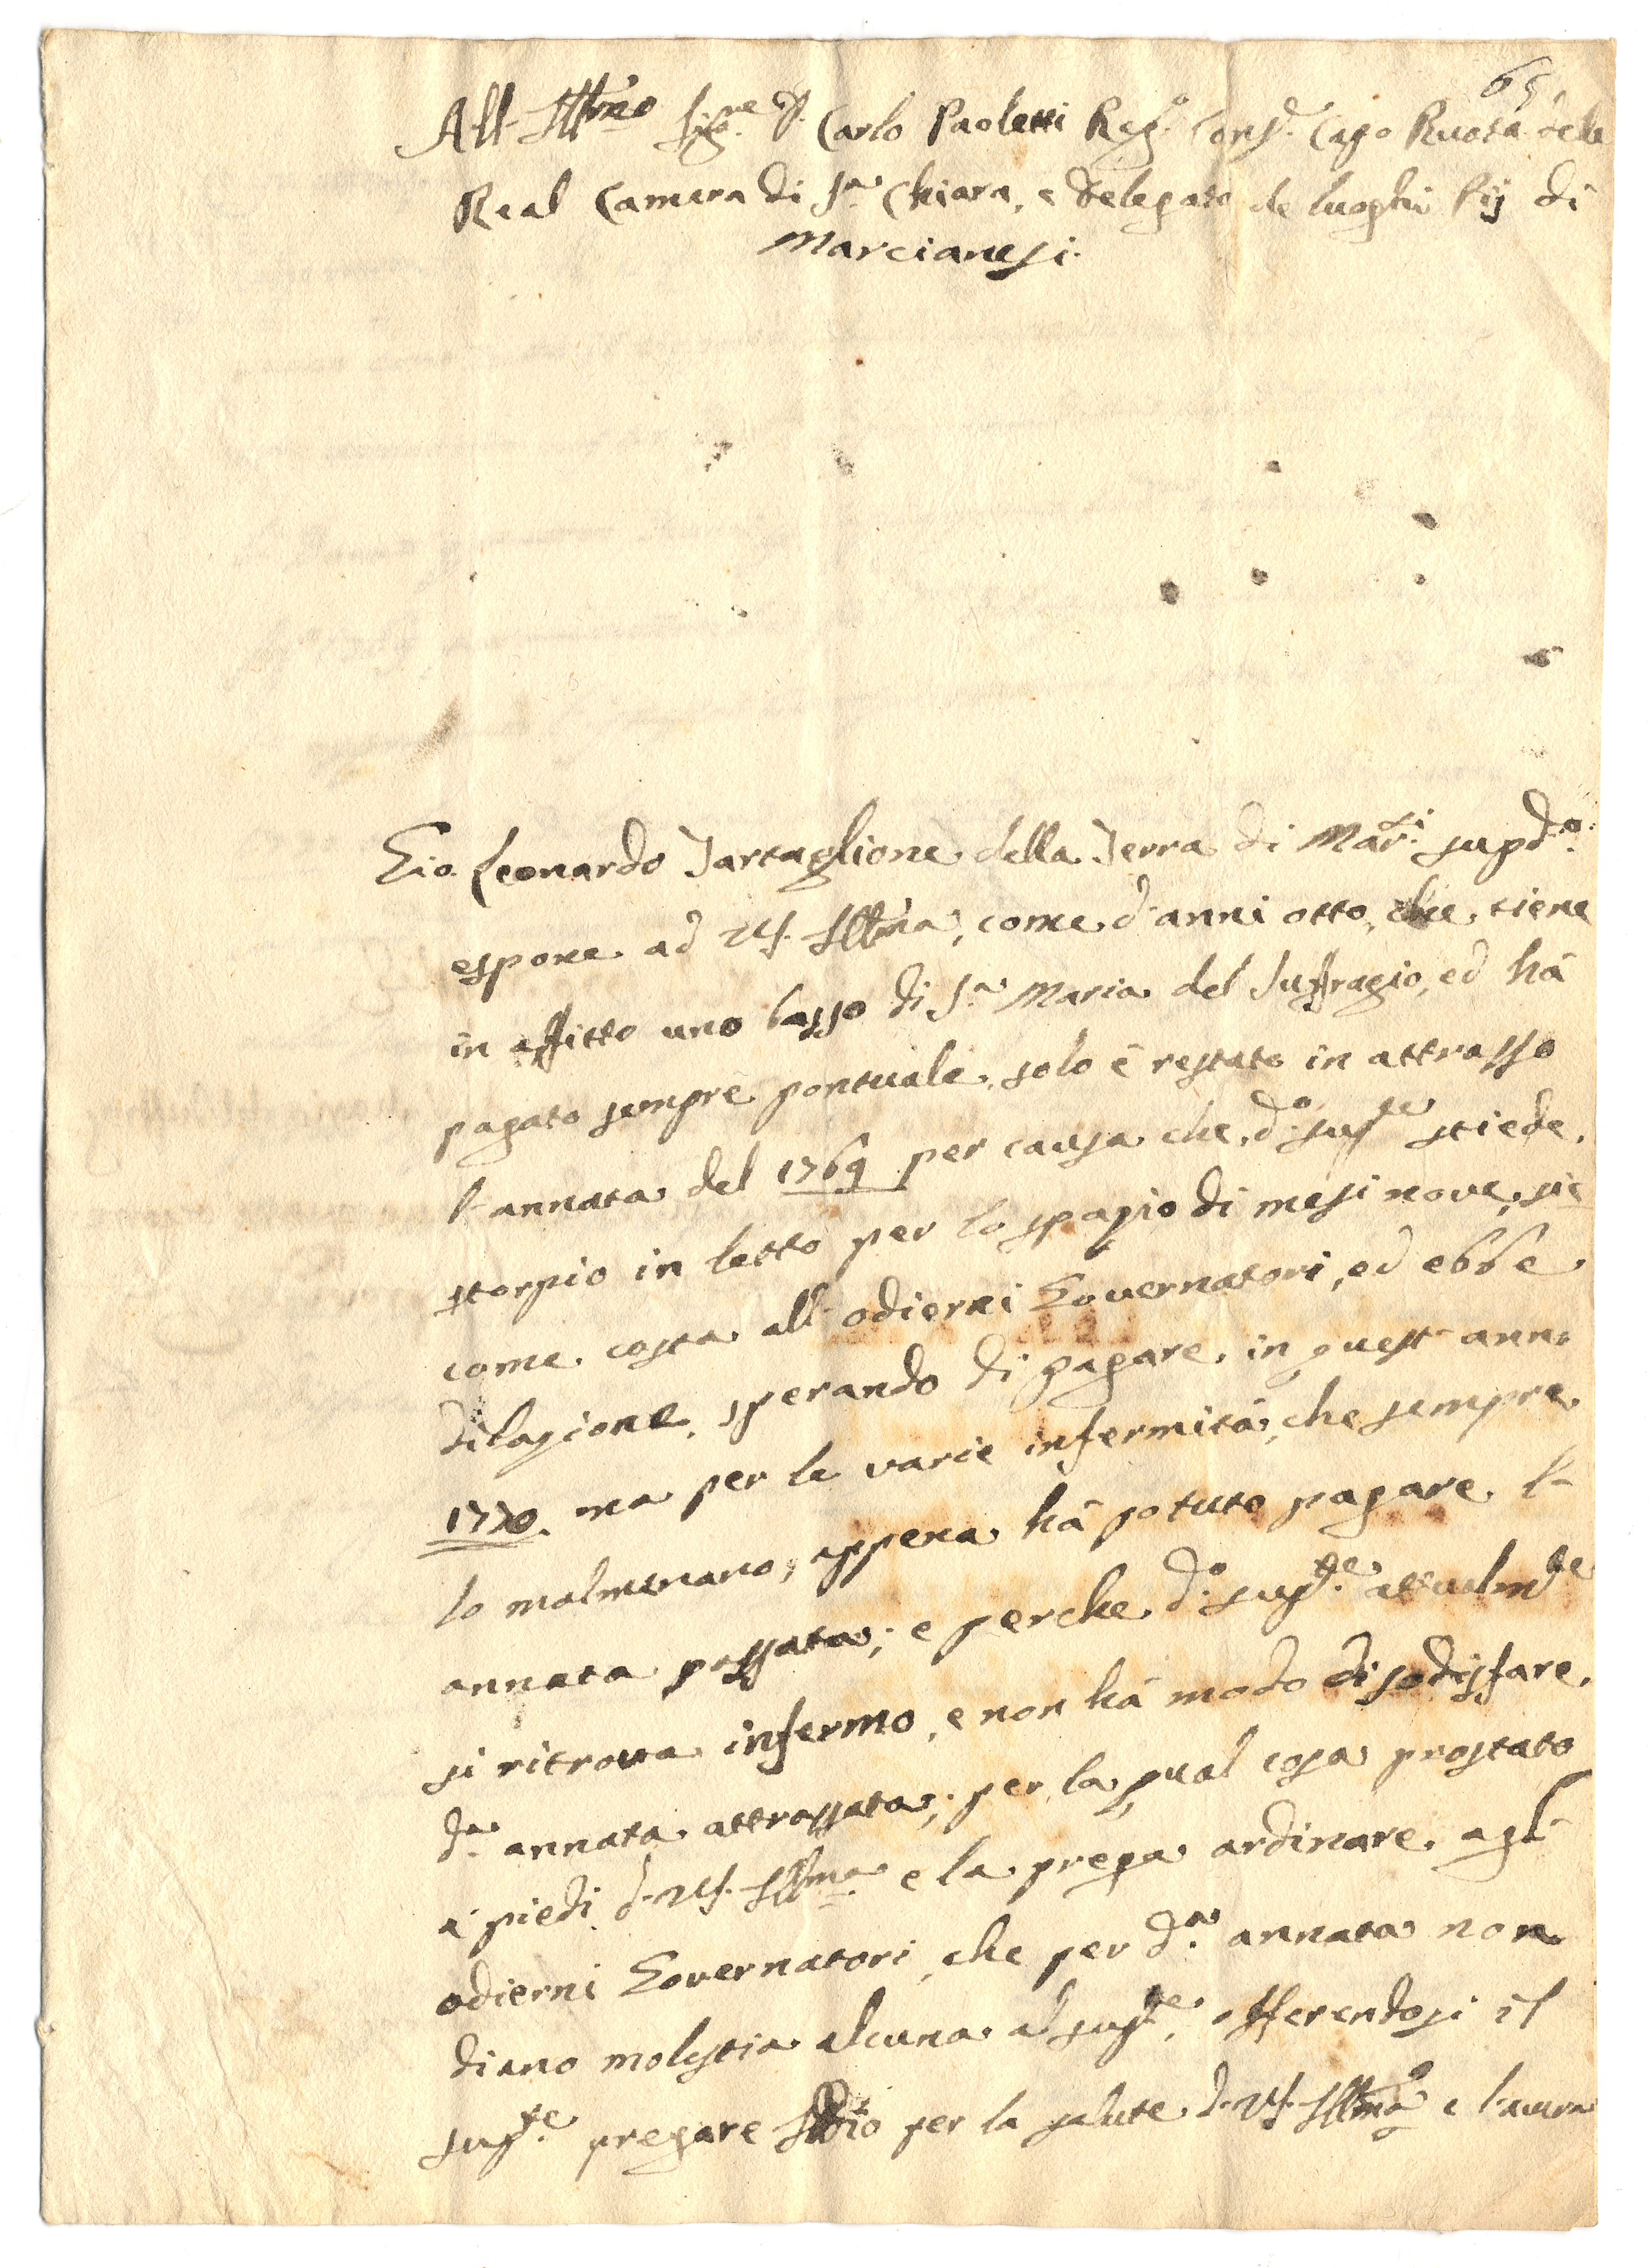 65
All' Ill.mo Sig.re D. Carlo Paoletti Reg.o Cons.r Capo Ruota dela
Real Camera di S.a Chiara, e Delegato de luoghi Pij di
Marcianesi.
Gio. Leonardo Tartaglione della Terra di Mar.si sup.do
espone ad V.S. Ill.ma, come d'anni otto, che tiene
in affitto uno basso di S.a Maria del Suffragio, ed hà
pagato sempre pontuale, solo è restato in attrasso
l'annata del 1769 per causa che d.o sup.te stiede
storpio in letto per lo spazio di mesi nove, sic
come costa all'odierni Governatori, ed ebbe
dilazione, sperando di pagare in quest'anno
1770. ma per le varie infermità, che sempre
lo malmenano, appena hà potuto pagare l'
annata passata; e perche d.o sup.te attualm.te
si ritrova infermo, e non hà modo di sodisfare
d.a annata attrassata; per la qual cosa prostato
a' piedi d. V.S. Ill.ma e la prega ardinare agl'
odierni Governatori, che per d.a annata non
diano molestia alcuna al sup.te, offerendosi il
sup.te pregare Iddio per la salute d. V.S. Ill.ma e l'avera